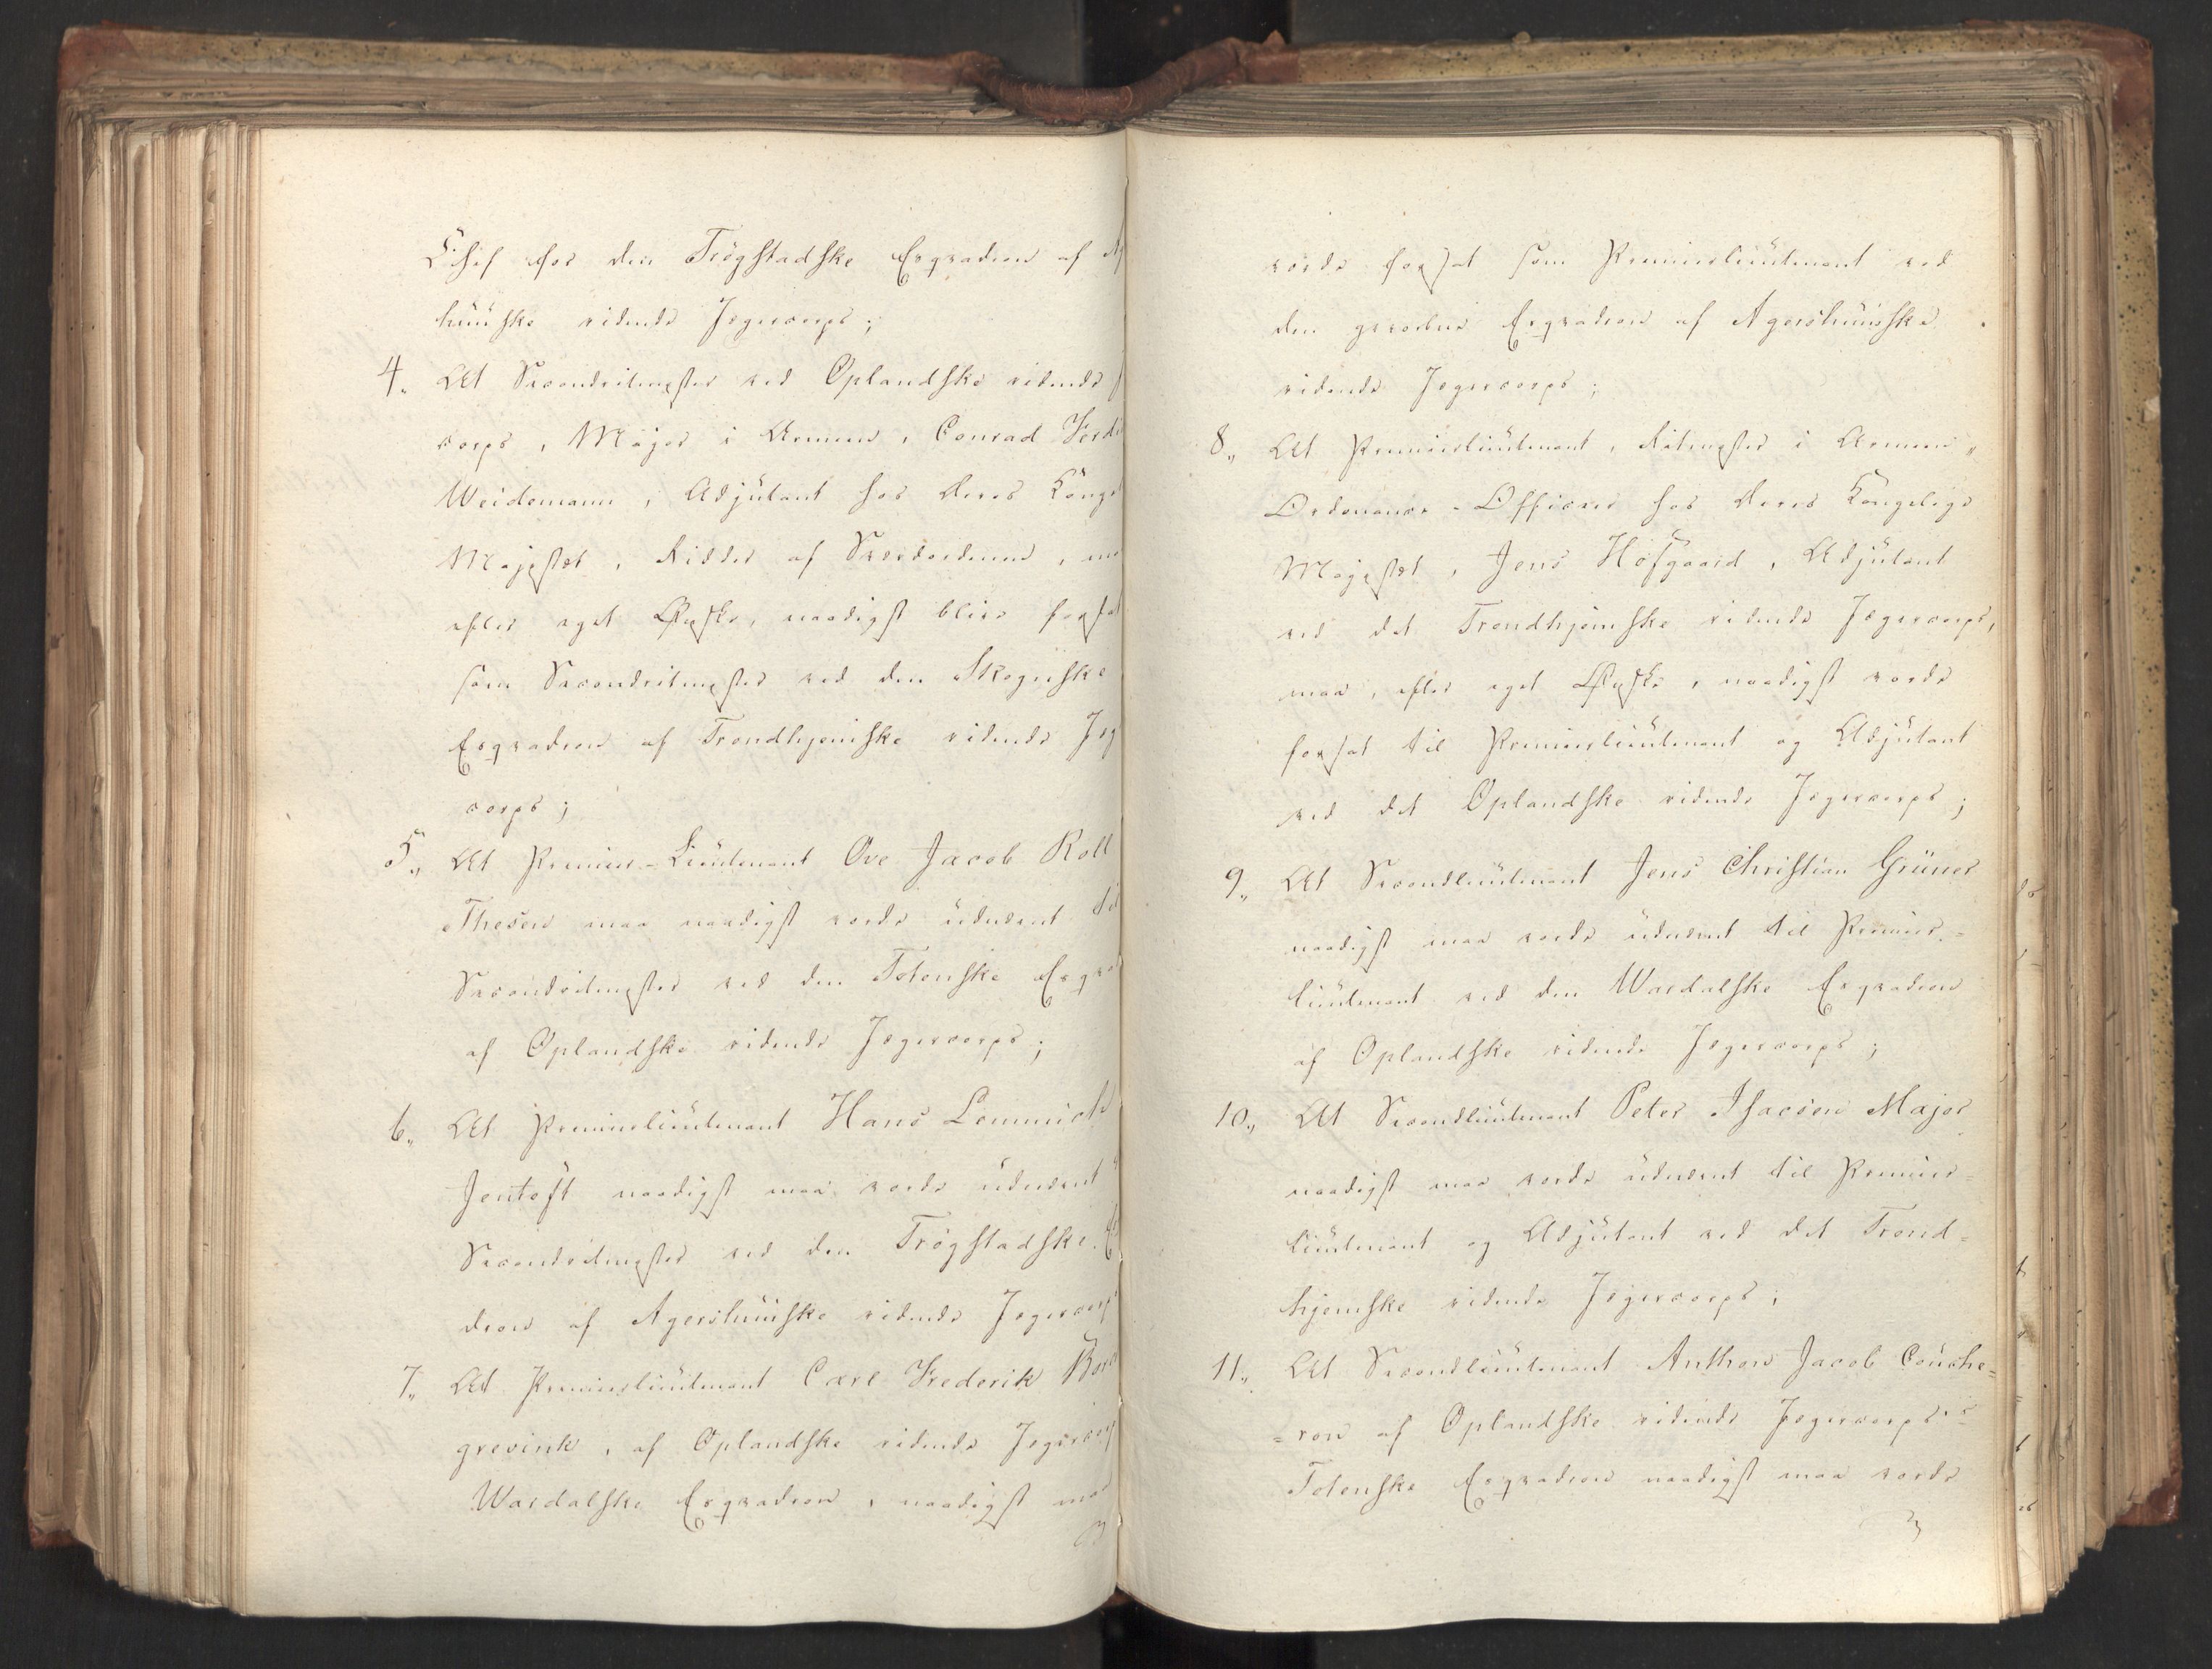 Chef for den Trögstadske Esqvadron af
huusske ridende Jægercorps;
4. At Secondritmester ved Oplandske ridende
corps, Major i Armeen, Conrad
Weidemann, Adjutant hos Deres
Majestæt, Ridder af Sværdordenen,
efter eget Ønske, naadigst blive forsat
som Secondritmester ved den Skognske
Esqvadron af Trondhjemske ridende Jæg
corps;
5., At Premier-Lieutenant Ove Jacob Roll
Thesen maa naadigst vorde udnævnt til
Secondritmester ved den Totenske Esqva
af Oplandske ridende Jægercorps;
6., At Premierlieutenant Hans Lemmich
Jentoft naadigst maa vorde udnævnt
Secondritmester ved den Trögstadske
dron af Agershuusske ridende Jægercorps
7., At Premierlieutenant Carl Frederik
grevink, af Oplandske ridende Jægercorps
Wardalske Esqvadron, naadigst maa
vorde forsat som Premierlieutenant ved
den Esqvadron af Agershuusske
ridende Jægercorps;
8., At Premierlieutenant, Ritmester i Armeen,
Ordonance-Officeer hos Deres Kongelige
Majestæt, Jens Hofgaard, Adjutant
ved det Trondhjemske ridende Jægercorps,
maa, efter eget Ønske, naadigst vorde
forsat til Premierlieutenant og Adjutant
ved det Oplandske ridende Jægercorps;
9., At Secondlieutenant Jens Christian Grüner
naadigst maa vorde udnævnt til Premier=
lieutenant ved den Wardalske Esqvadron
af Oplandske ridende Jægercorps;
10., At Secondlieutenant Peter Isacsen Major
naadigst maa vorde udnævnt til Premier=
lieutenant og Adjutant ved det Trond=
hjemske ridende Jægercorps;
11., At Secondlieutenant Anthon Jacob Couche=
=ron af Oplandske ridende Jægercorps's
Totenske Esqvadron naadigst maa vorde